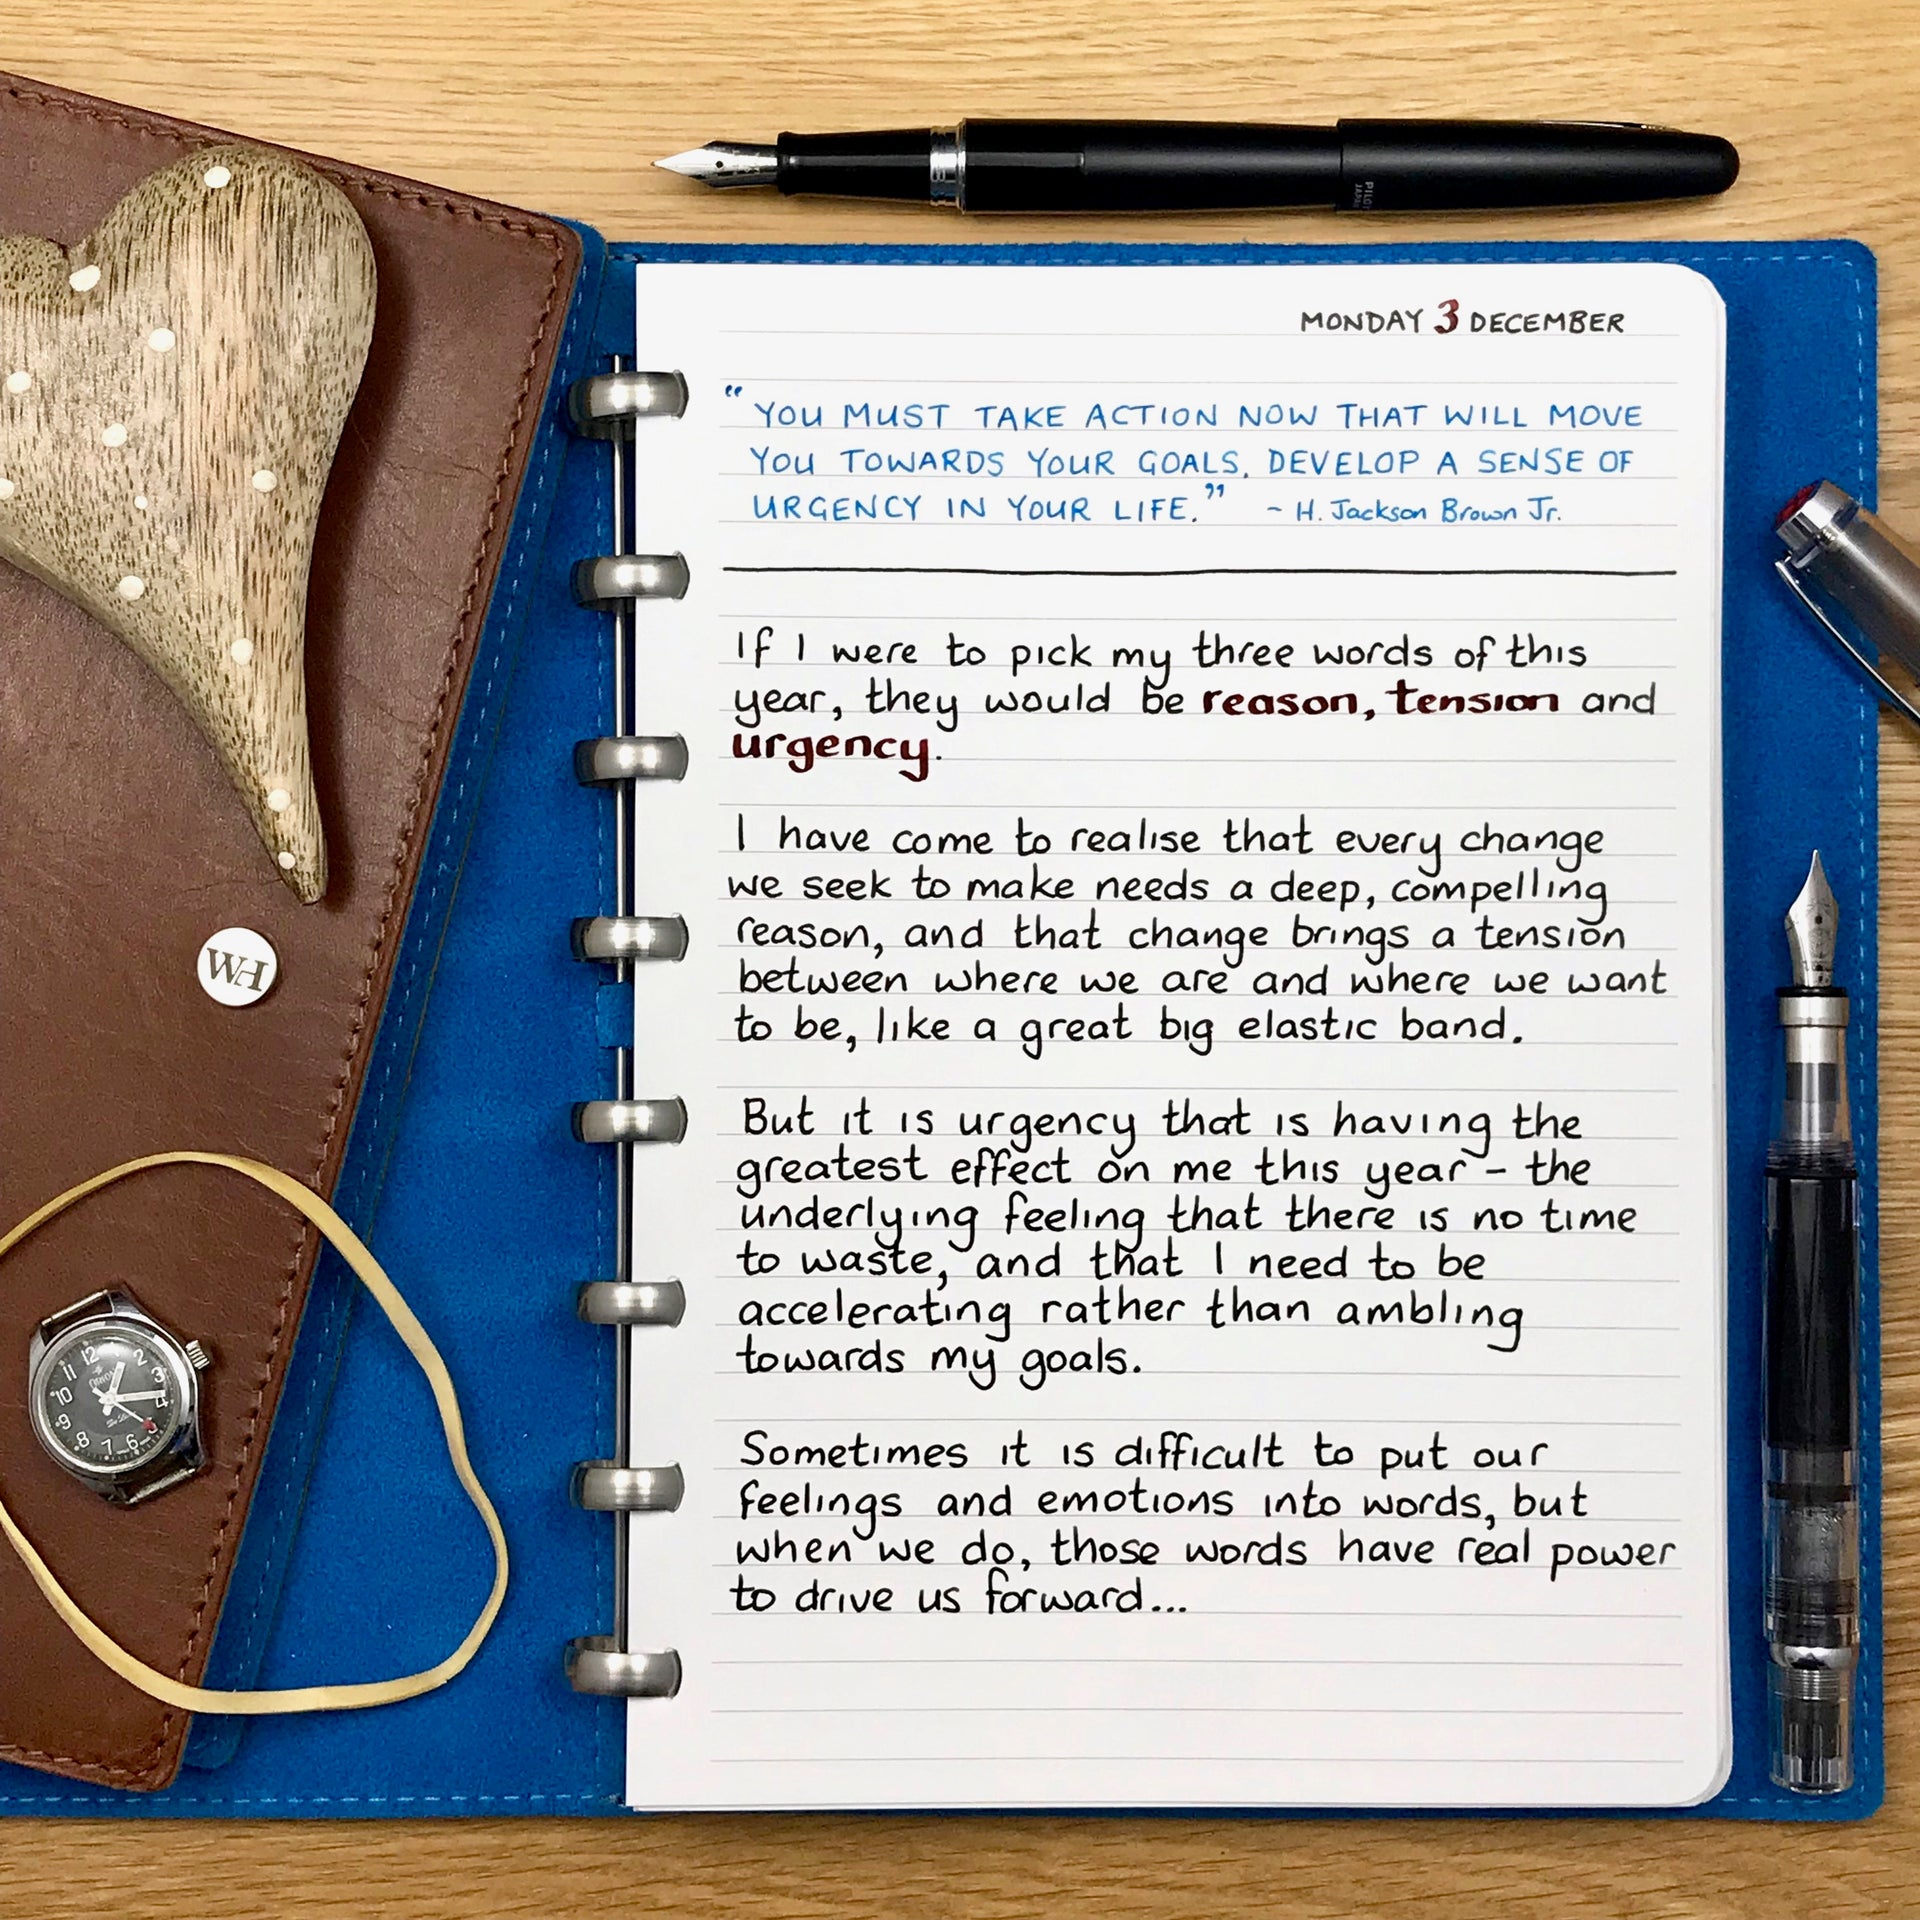 PILOT
JAPAN
MONDAY 3 DECEMBER
“YOU MUST TAKE ACTION NOW THAT WILL MOVE
YOU TOWARDS YOUR GOALS. DEVELOP A SENSE OF
URGENCY IN YOUR LIFE.” ~ H. Jackson Brown Jr.
If I were to pick my three words of this
year, they would be reason, tension and
urgency.
I have come to realise that every change
we seek to make needs a deep, compelling
reason, and that change brings a tension
between where we are and where we want
to be, like a great big elastic band.
But it is urgency that is having the
greatest effect on me this year – the
underlying feeling that there is no time
to waste, and that I need to be
accelerating rather than ambling
towards my goals.
Sometimes it is difficult to put our
feelings and emotions into words, but
when we do, those words have real power
to drive us forward...
WH
12
2
3
4
6
7
8
9
10
11